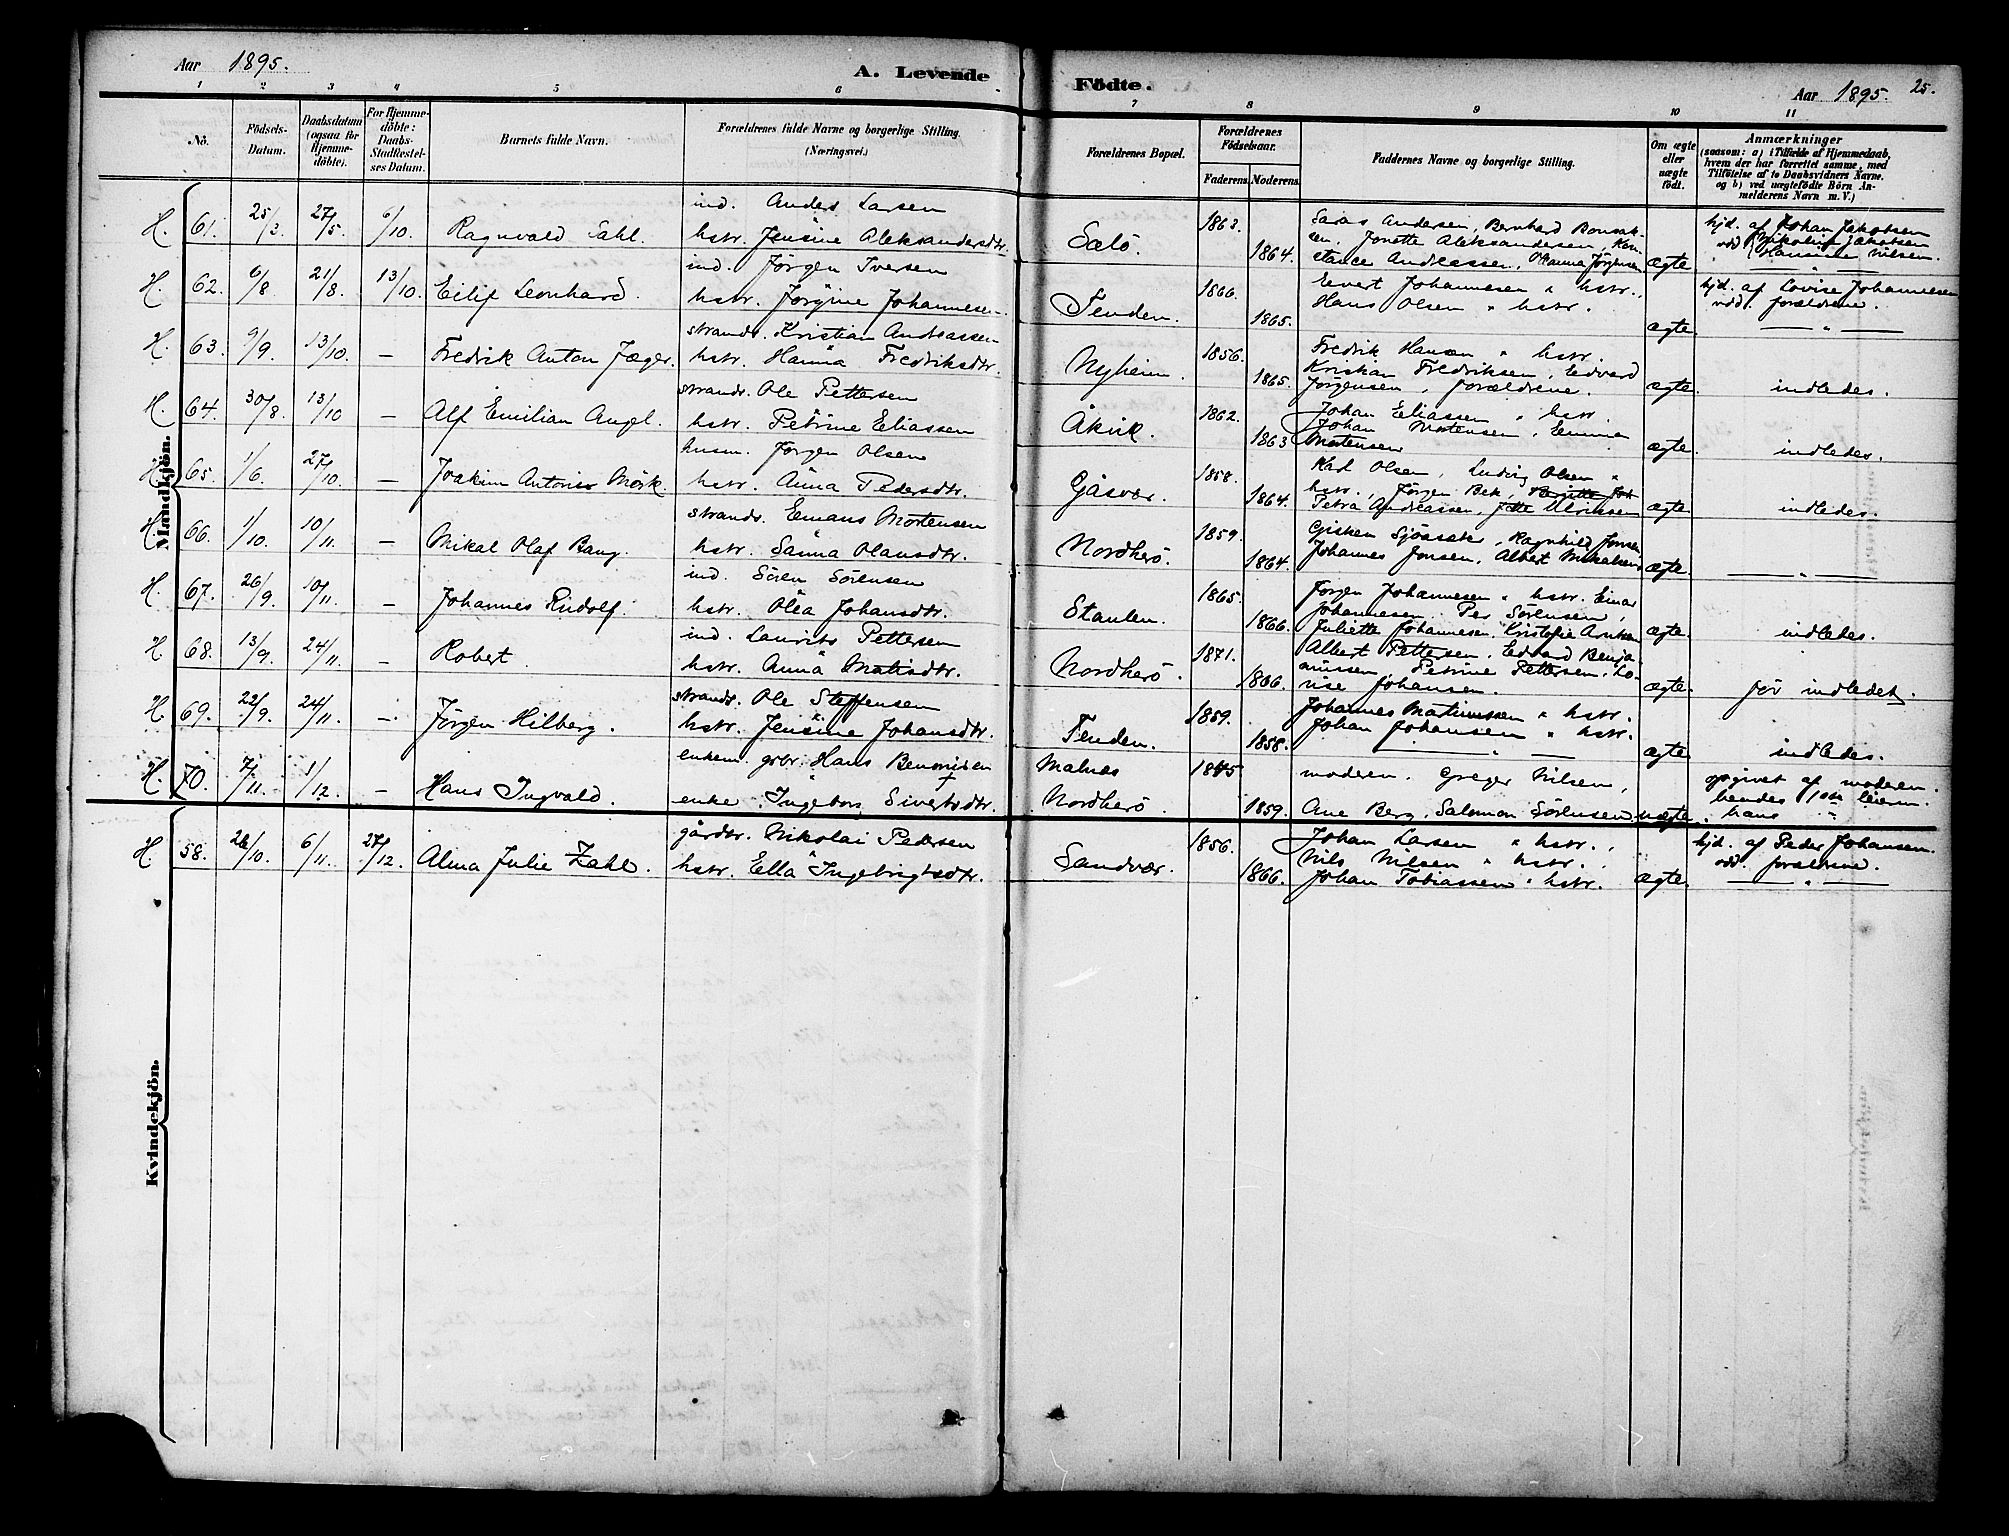 Aar 1895.
A. Levende Födte.
Aar 1895. 25.
1 2 3 4 5 6 7 8 9 10 11
No.
Födsels-Datum.
Daabsdatum (ogsaa for Hjemmedöbte).
For Hjemmedöbte: Daabs-Stadfæstelses Datum.
Barnets fulde Navn.
Forældrenes fulde Navne og borgerlige Stilling. (Næringsvei.)
Forældrenes Bopæl.
Forældrenes Födselsaar. Faderens. Moderens.
Faddernes Navne og borgerlige Stilling.
Om ægte eller uægte födt.
Anmærkninger (saasom: a) i Tilfælde af Hjemmedaab, hvem der har forrettet samme, med Tilföielse af to Daabsvidners Navne. og b) ved uægtefödte Börn Anmelderens Navn m. V.)
Mandkjön.
H. 61. 25/3 27/5. 6/10. Ragnvald Sahl. ind. Anders Larsen
hstr. Jensine Aleksandersdtr. Salö. 1863. 1864.
Saras Andersen, Bernhard Bonsak-
sen, Jonette Aleksandersen, Kon-
stance Andreassen, Jørgensen ægte
hjd. af Johan Jakobsen
vdd. Nikolai Jakobsen
Nilsen.
H. 62. 6/8 21/8. 13/10. Eilif Leonhard. ind. Jörgen Iversen
hstr. Jørgine Johannesen. Tenden. 1866. 1865.
Evert Johannesen " hstr.,
Hans Olsen " hstr. ægte
hjd. af Lovise Johannesen
vdd. forældrene.
H. 63. 9/9. 13/10. — Fredrik Anton Jæger. strands. Kristian Andreassen
hstr. Hanna Fredriksdtr. Nyheim. 1856. 1865.
Fredrik Hansen " hstr.
Kristian Fredriksen, Edvard
Jørgensen, forældrene. ægte. indledes.
H. 64. 30/8. 13/10 — Alf Emilian Angel. strands. Ole Pettersen
hstr. Petrine Eliassen Åkvik. 1862. 1863
Johan Eliassen " hstr.
Johan Mortensen, Emma
Mortensen ægte. indledes.
H. 65. 1/6. 27/10. — Joakim Antonius Mörk. husm. Jörgen Olsen
hstr. Anna Pedersdtr. Gåsvær. 1858. 1864.
Karl Olsen, Ludvig Olsen "
hstr., Jørgen Bek,
Petra Andreassen, Ulriksen ægte indledes.
H. 66. 1/10. 10/11. — Mikal Olaf Bang. strands. Emans Mortensen
hstr. Sanna Olausdtr. Nordherö. 1859. 1864.
Sjøsæter, Ragnhild Jensen
Johannes Jensen, Albert Mikalsen ægte. — " —
H. 67. 26/9. 10/11. — Johannes Rudolf. ind. Sören Sörensen
hstr. Olea Johansdtr. Staulen. 1865. 1866.
Jörgen Johannesen " hstr. Einar
Johannesen, Per Sörensen,
Juliette Johannesen, Kristofie ægte. indledes.
H 68. 13/9. 24/11. — Robert. ind. Laurits Pettersen
hstr. Anna Matisdtr. Nordherö. 1871. 1866.
Albert Pettersen, Edvard Benja-
minsen, Petrine Pettersen, Lo-
vise Johansen. ægte. før indledet.
H 69. 22/9. 24/11. — Jörgen Hilberg. strands. Ole Steffensen
hstr. Jensine Johansdtr. Tenden. 1859. 1858.
Johannes Martinussen " hstr.
Johan Johansen " hstr. ægte indledes.
H. 70. 7/11. 1/12. — Hans Ingvald. enkem. grbr. Hans Benonisen
enke Ingeborg Sivertsdtr. Malnæs Nordherö. 1845 1859.
moderen. Greger Nilsen,
Ane Berg, Salomon Sörensen uægte.
opgivet af moderen.
hendes 10de leierm.
hans "
Kvindekjön.
H. 58. 26/10. 6/11. 27/12. Alma Julie Zahl. gårdbr. Nikolai Pedersen
hstr. Ella Ingebrigtsdtr. Sandvær. 1856. 1866.
Johan Larsen " hstr.,
Nils Nilsen " hstr.
Johan Tobiassen " hstr. ægte.
hjd. af Peder Johansen.
vdd. forældrene.
— " —